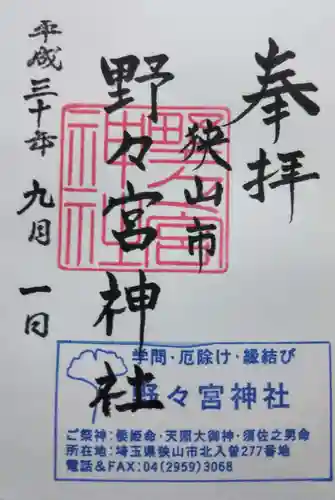 奉拝
狭山市
野々宮神社
平成三十年 九月 一日
野々宮神社
学問・厄除け・縁結び
野々宮神社
ご祭神：倭姫命・天照大御神・須佐之男命
所在地：埼玉県狭山市北入曽277番地
電話＆FAX：04(2959)3068